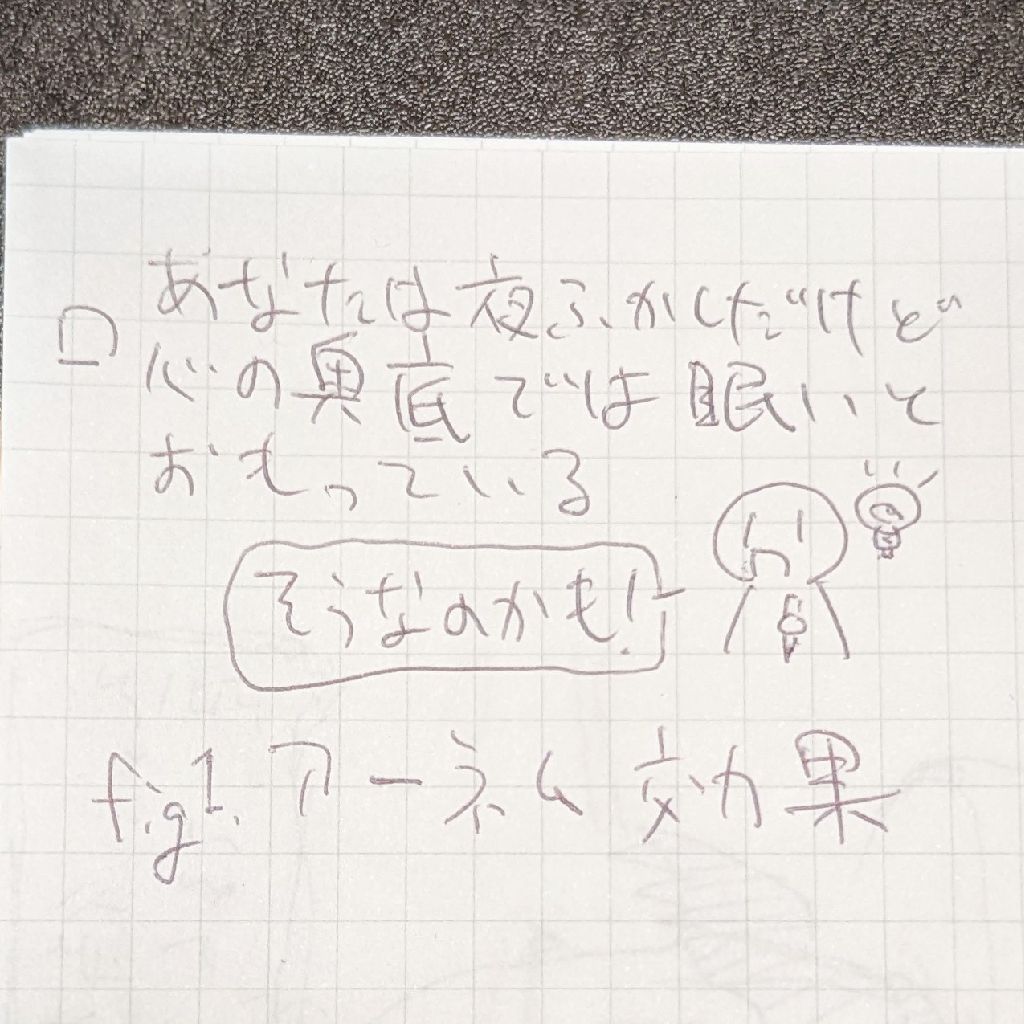 あなたは夜ふかしだけど
心の奥底では眠いと
おもっている
そうなのかも!
fig1. アーネム効果